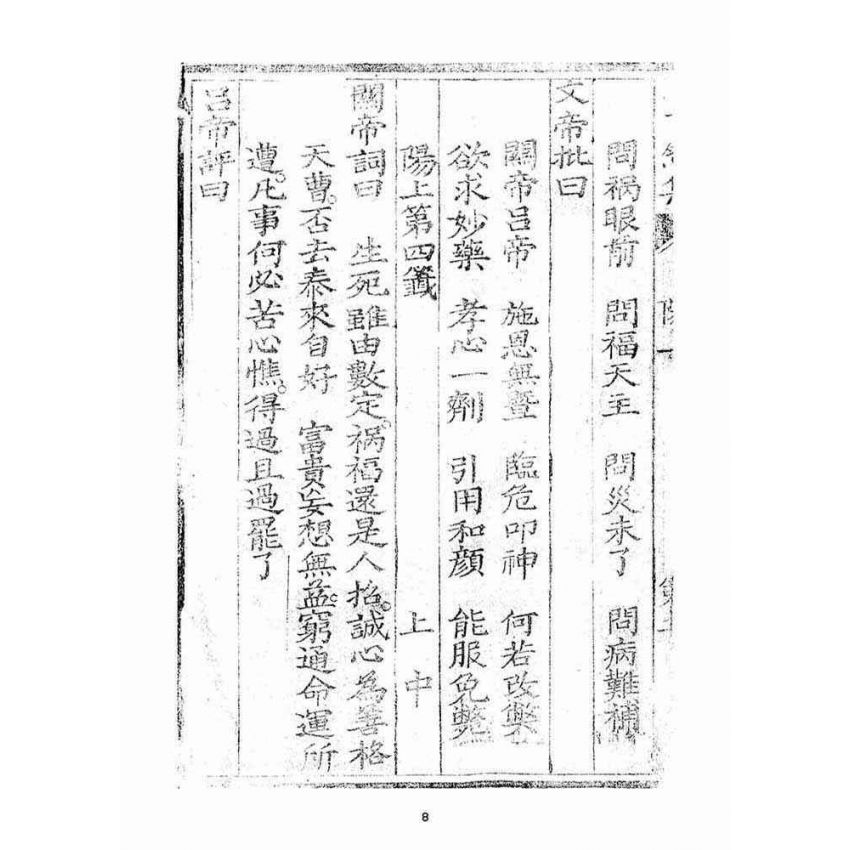 問禍眼前　問福天主　問災未了　問病難補
文帝批曰
關帝呂帝　施恩無暨　臨危叩神　何若改藥
欲求妙藥　孝心一劑　引用和顔　能服免斃
陽上第四籤　上中
關帝詞曰　生死雖由數定。禍福還是人招。誠心為善格
天曹。否去泰來自好　富貴妄想無益。窮通命運所
遭。凡事何必苦心憔。得過且過罷了
呂帝評曰
8